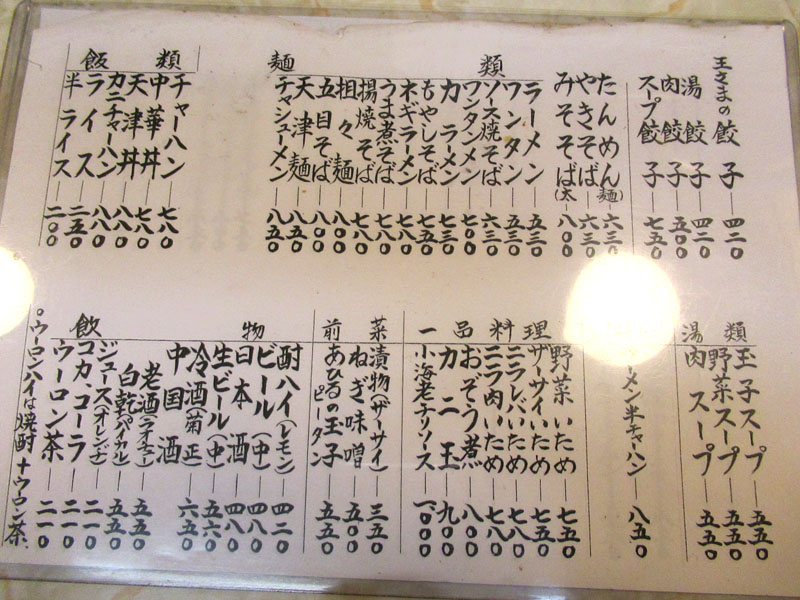 王さまの餃子 四二〇
湯餃子 四二〇
肉餃子 五〇〇
スープ餃子 七五〇
麺類
たんめん(麺) 六三〇
やきそば 六三〇
みそそば(太) 八〇〇
ラーメン 五三〇
ワンタン 五三〇
ソース焼そば 六三〇
ワンタンメン 七〇〇
カラーメン 六三〇
もやしそば 七五〇
ネギラーメン 七八〇
うま煮そば 七八〇
揚焼そば 七八〇
担々麺 八〇〇
五目そば 八〇〇
天津麺 八五〇
チャシューメン 八五〇
飯類
チャーハン 七八〇
中華丼 七八〇
天津丼 八八〇
カニチャーハン 八八〇
ライス 二五〇
半ライス 二〇〇
湯類
玉子スープ 五五〇
野菜スープ 五五〇
肉スープ 五五〇
ーメン半チャーハン 八五〇
一品料理
野菜いため 七五〇
ザーサイいため 七五〇
ニラレバいため 七八〇
ニラ肉いため 七八〇
おぞう煮 八〇〇
カニ玉 九〇〇
小海老チリソース 一、〇〇〇
前菜
漬物(ザーサイ) 三五〇
ねぎ味噌 五〇〇
あひるの玉子(ピータン) 五五〇
飲物
酎ハイ(レモン) 四二〇
ビール(中) 四八〇
日本酒 四八〇
生ビール(中) 五六〇
冷酒(菊正) 六五〇
中国酒
老酒(ラオチュー) 五五〇
白乾(パイカル) 五五〇
ジュース(オレンヂ) 二一〇
コカ、コーラ 二一〇
ウーロン茶 二一〇
。ウーロンハイは焼酎+ウーロン茶、